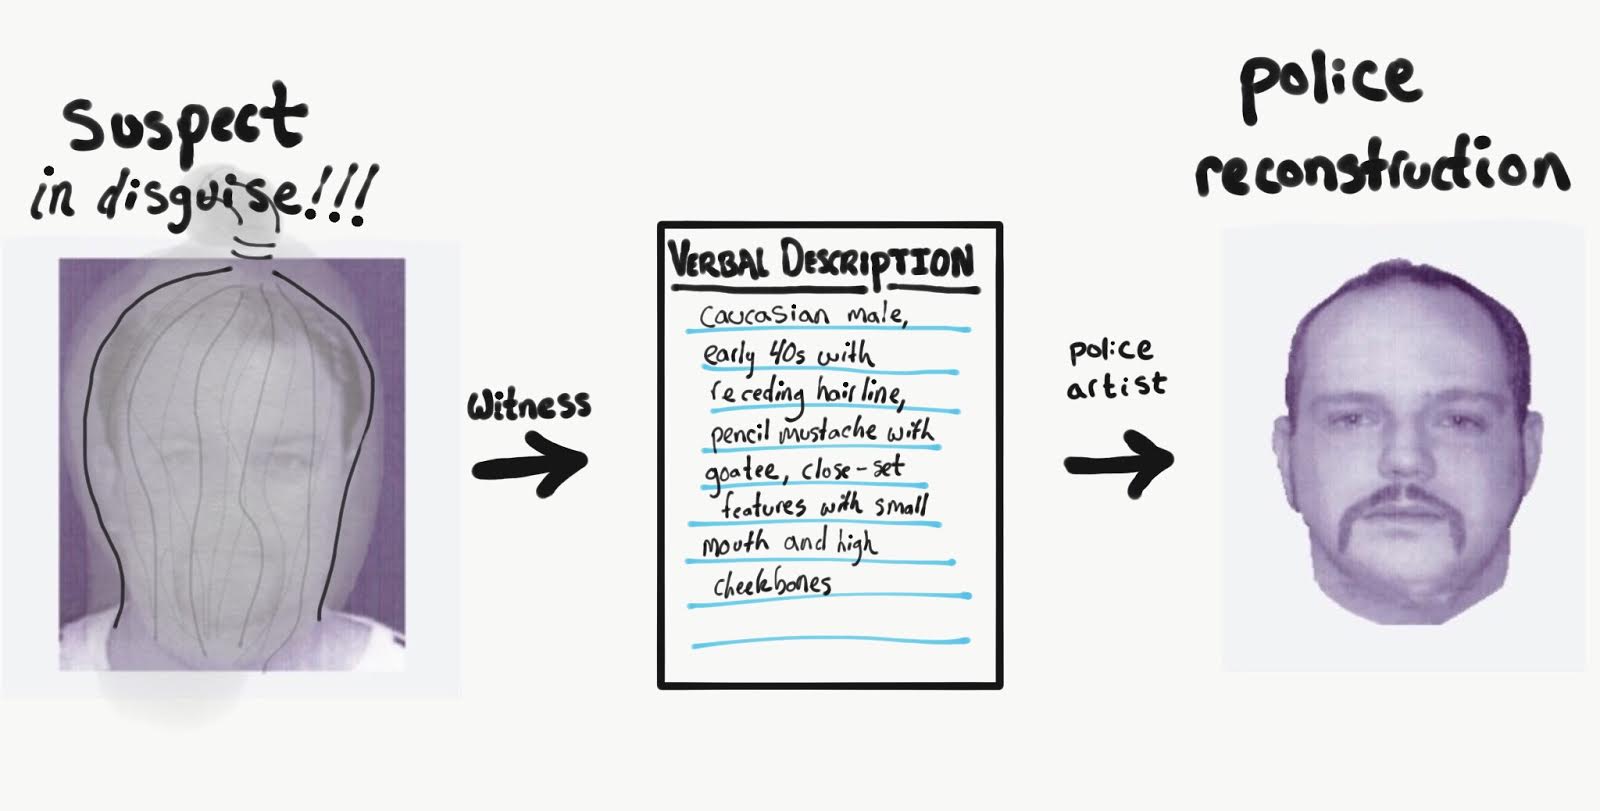 suspect
in disguise!!!
witness
VERBAL DESCRIPTION
caucasian male,
early 40s with
receding hairline,
pencil mustache with
goatee, close-set
features with small
mouth and high
cheekbones
police
artist
police
reconstruction